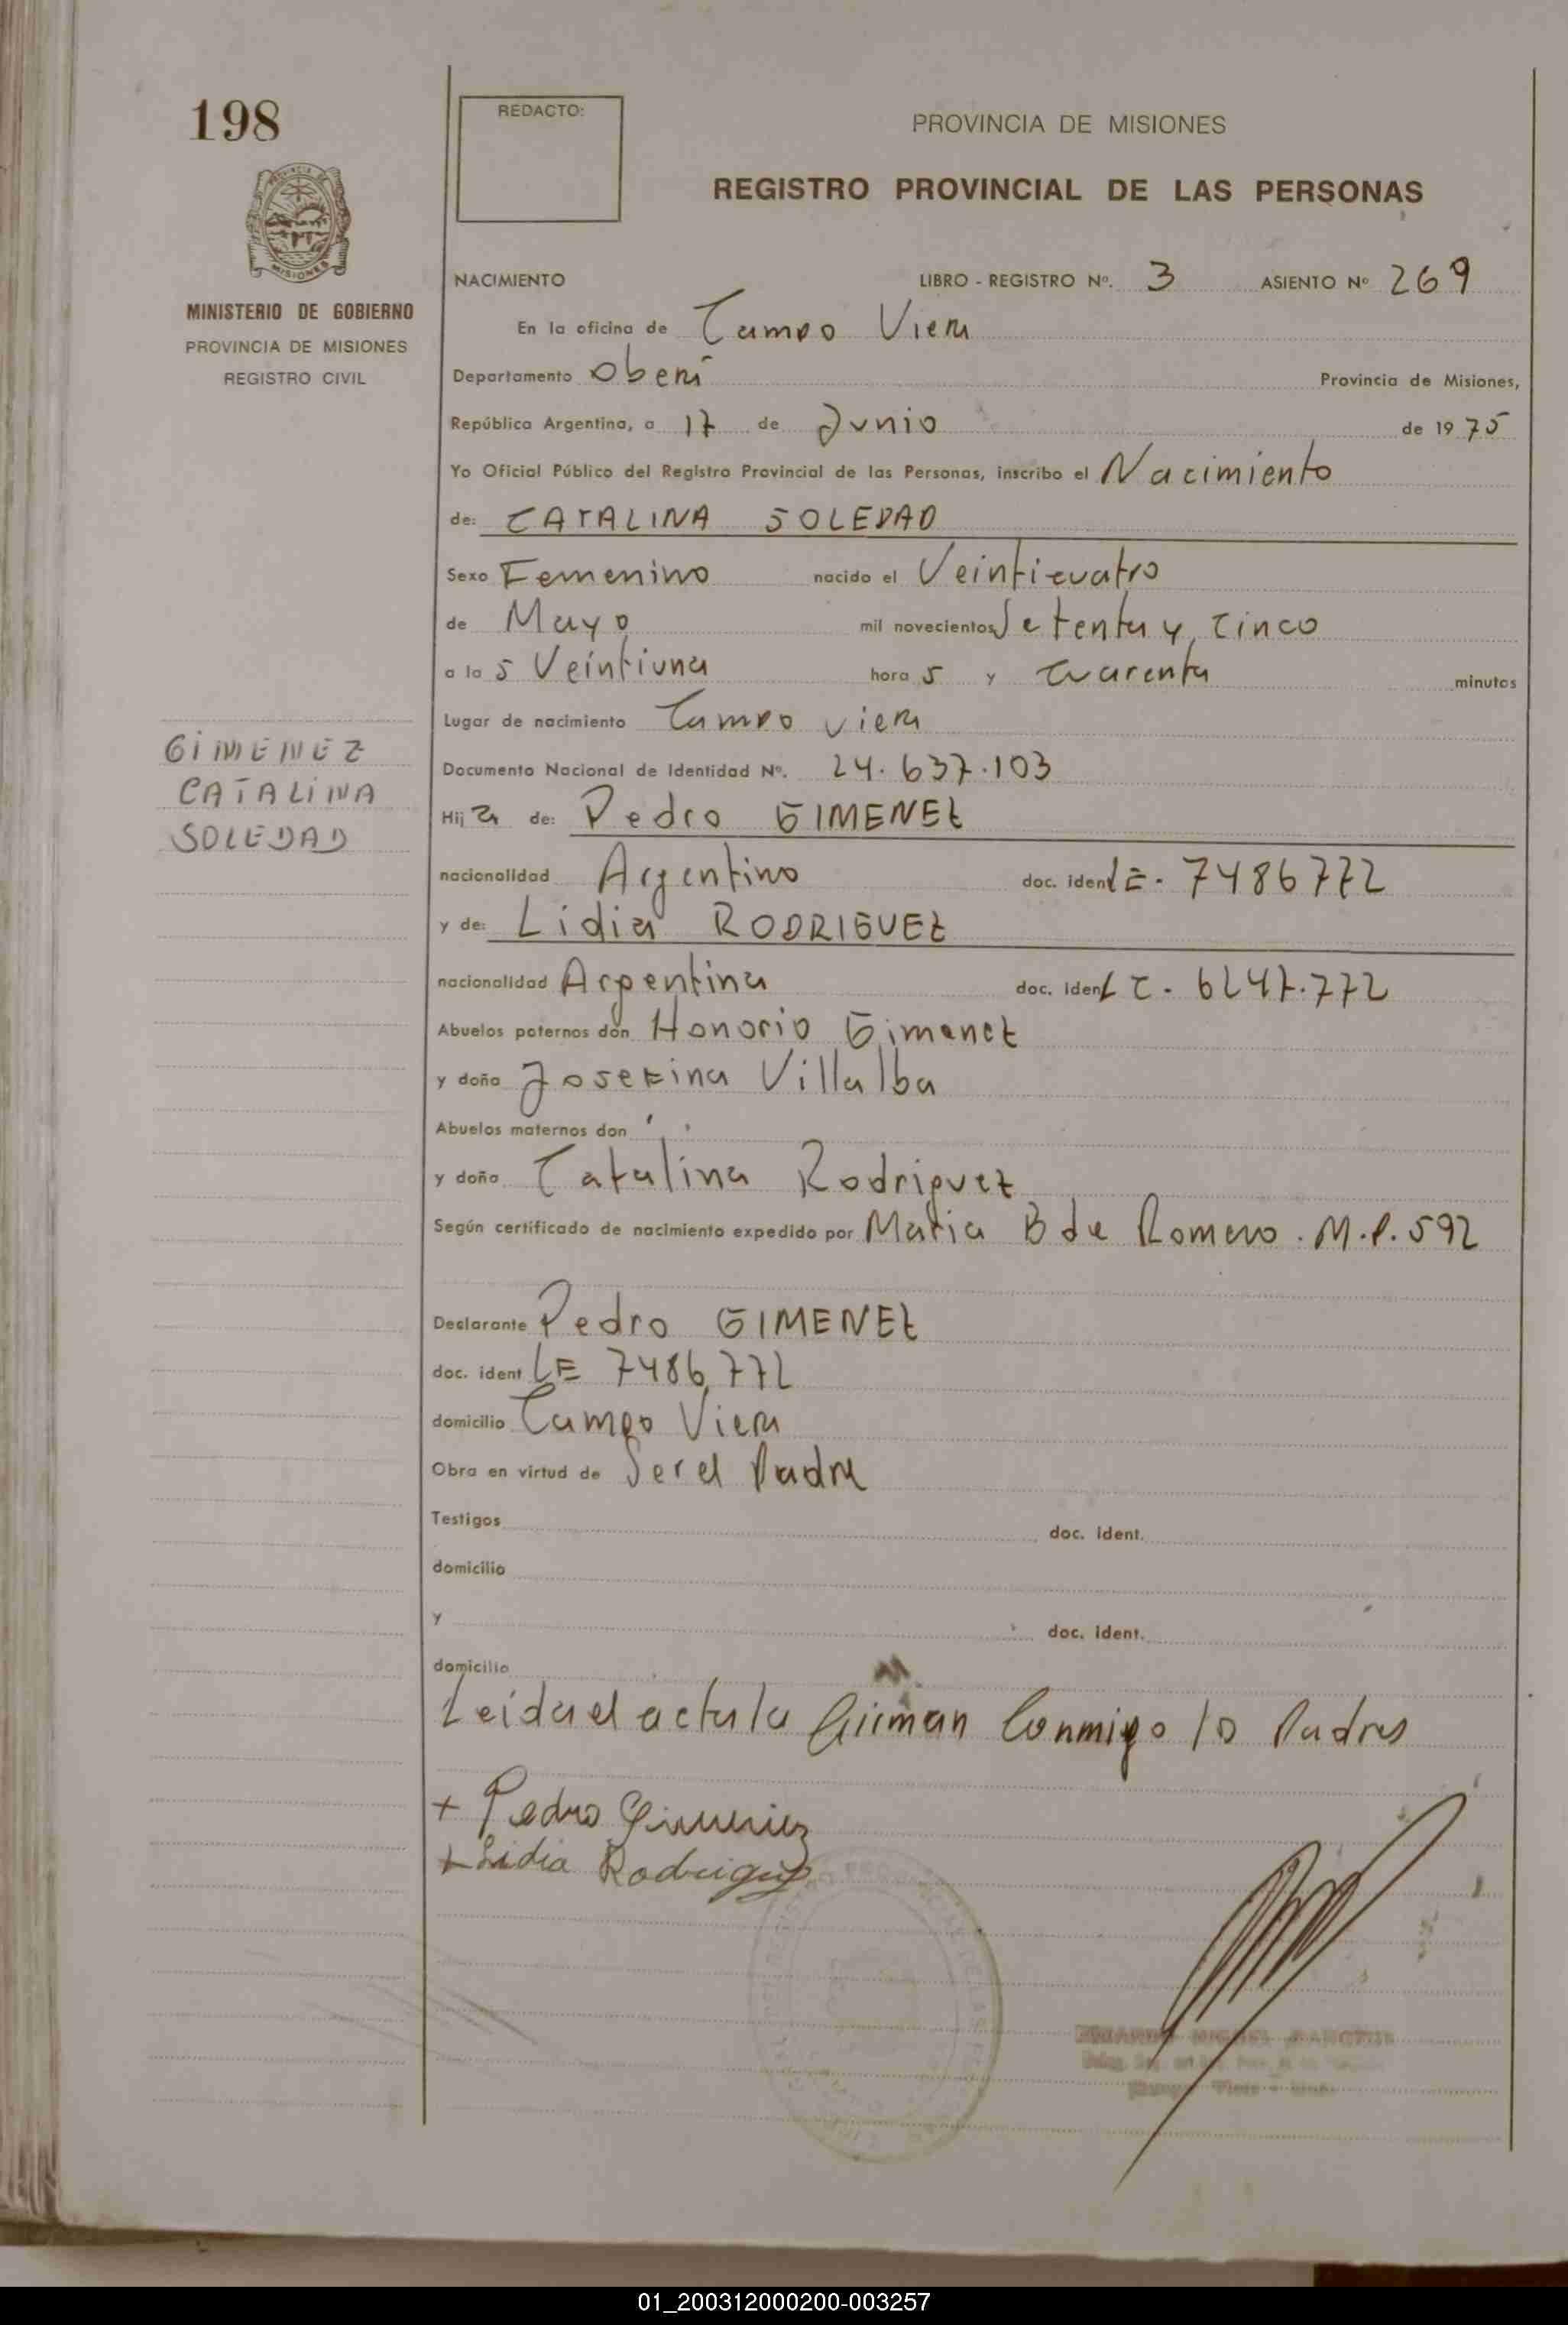 198
REDACTO:
PROVINCIA DE MISIONES
REGISTRO PROVINCIAL DE LAS PERSONAS
MISIONES
MINISTERIO DE GOBIERNO
PROVINCIA DE MISIONES
REGISTRO CIVIL
NACIMIENTO LIBRO - REGISTRO Nº. 3 ASIENTO Nº 269
En la oficina de Campo Viera
Departamento Oberá Provincia de Misiones,
República Argentina, a 17 de Junio de 1975
Yo Oficial Público del Registro Provincial de las Personas, inscribo el Nacimiento
de: CATALINA SOLEDAD
Sexo Femenino nacido el Veinticuatro
de Mayo mil novecientos Setenta y Cinco
a la s Veintiuna hora s y Cuarenta minutos
Lugar de nacimiento Campo Viera
GIMENEZ
CATALINA
SOLEDAD
Documento Nacional de Identidad Nº. 24.637.103
Hij a de: Pedro GIMENEZ
nacionalidad Argentino doc. ident LE. 7486772
y de: Lidia RODRIGUEZ
nacionalidad Argentina doc. ident LC. 6247.772
Abuelos paternos don Honorio Gimenez
y doña Josefina Villalba
Abuelos maternos don
y doña Catalina Rodriguez
Según certificado de nacimiento expedido por Maria B de Romero. M.P. 592
Declarante Pedro GIMENEZ
doc. ident LE 7486,772
domicilio Campo Viera
Obra en virtud de Ser el Padre
Testigos doc. ident.
domicilio
y doc. ident.
domicilio
Leida el acta la Firman Conmigo lo Padres
+ Pedro Gimenez
+ Lidia Rodriguez
01_200312000200-003257